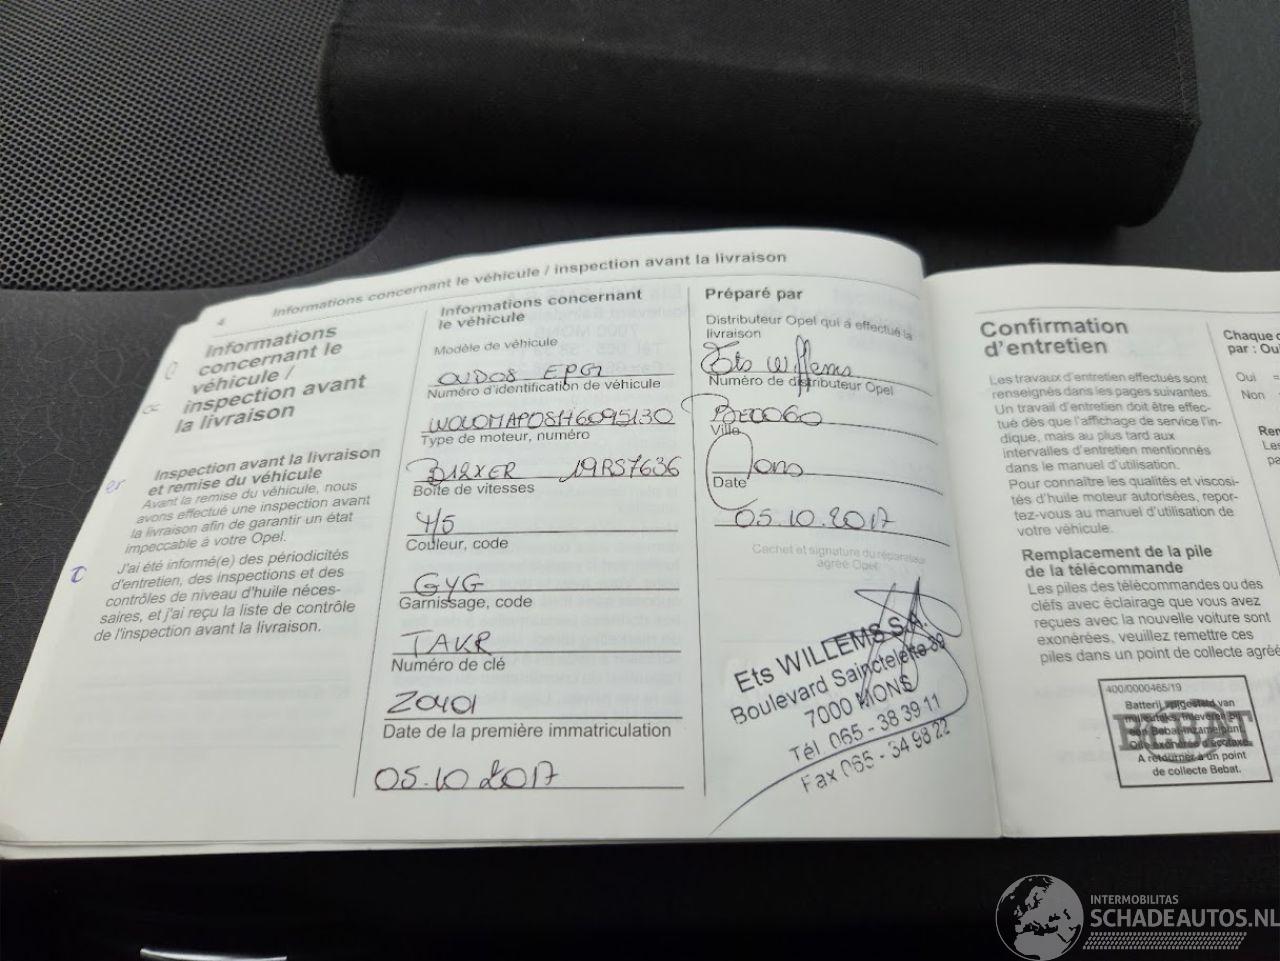 4
Informations concernant le véhicule / inspection avant la livraison
Informations
concernant le
véhicule /
inspection avant
la livraison
Inspection avant la livraison
et remise du véhicule
Avant la remise du véhicule, nous
avons effectué une inspection avant
la livraison afin de garantir un état
impeccable à votre Opel.
J'ai été informé(e) des périodicités
d'entretien, des inspections et des
contrôles de niveau d'huile néces-
saires, et j'ai reçu la liste de contrôle
de l'inspection avant la livraison.
Informations concernant
le véhicule
Modèle de véhicule
Numéro d'identification de véhicule
W0L0MAP08H6095130
Type de moteur, numéro
B12XER 19RS7636
Boîte de vitesses
Y5
Couleur, code
GYG
Garnissage, code
TAKR
Numéro de clé
Date de la première immatriculation
05.10.2017
Préparé par
Distributeur Opel qui a effectué la
livraison
Ets Willems
Numéro de distributeur Opel
Ville
Mons
Date
05.10.2017
Cachet et signature du réparateur
agréé Opel
Ets WILLEMS S.A.
Boulevard Sainctelette 39
7000 MONS
Tél 065 - 38 39 11
Fax 065 - 34 98 22
Confirmation
d'entretien
Les travaux d'entretien effectués sont
renseignés dans les pages suivantes.
Un travail d'entretien doit être effec-
tué dès que l'affichage de service l'in-
dique, mais au plus tard aux
intervalles d'entretien mentionnés
dans le manuel d'utilisation.
Pour connaître les qualités et viscosi-
tés d'huile moteur autorisées, repor-
tez-vous au manuel d'utilisation de
votre véhicule.
Remplacement de la pile
de la télécommande
Les piles des télécommandes ou des
clefs avec éclairage que vous avez
reçues avec la nouvelle voiture sont
exonérées, veuillez remettre ces
piles dans un point de collecte agréé
400/0000465/19
BEBAT
Batterij vrijgesteld van
milieutaks, inleveren bij
een Bebat-inzamelpunt.
Pile exonérée d'écotaxe.
A retourner à un point
de collecte Bebat.
Chaque
par : Ou
Oui =
Non
Les
INTERMOBILITAS
SCHADEAUTOS.NL